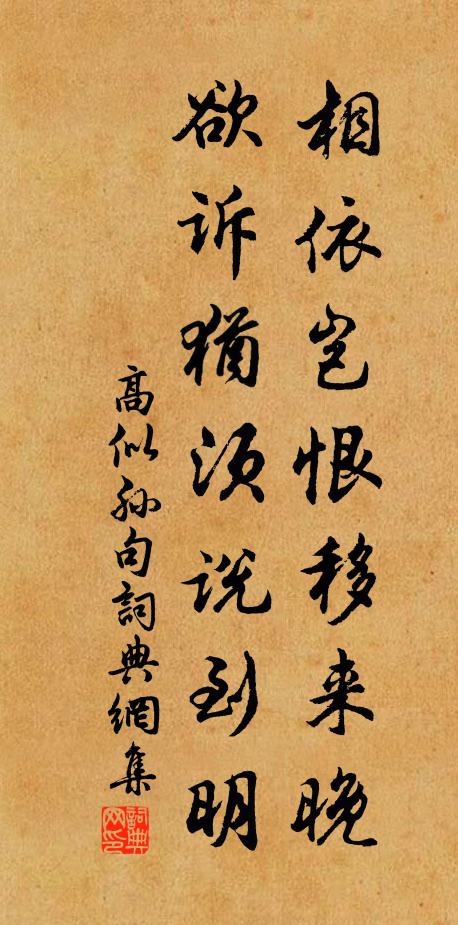 相依岂恨移来晚
欲诉猶須说到明
高似孙句詞典網集
詞典网印